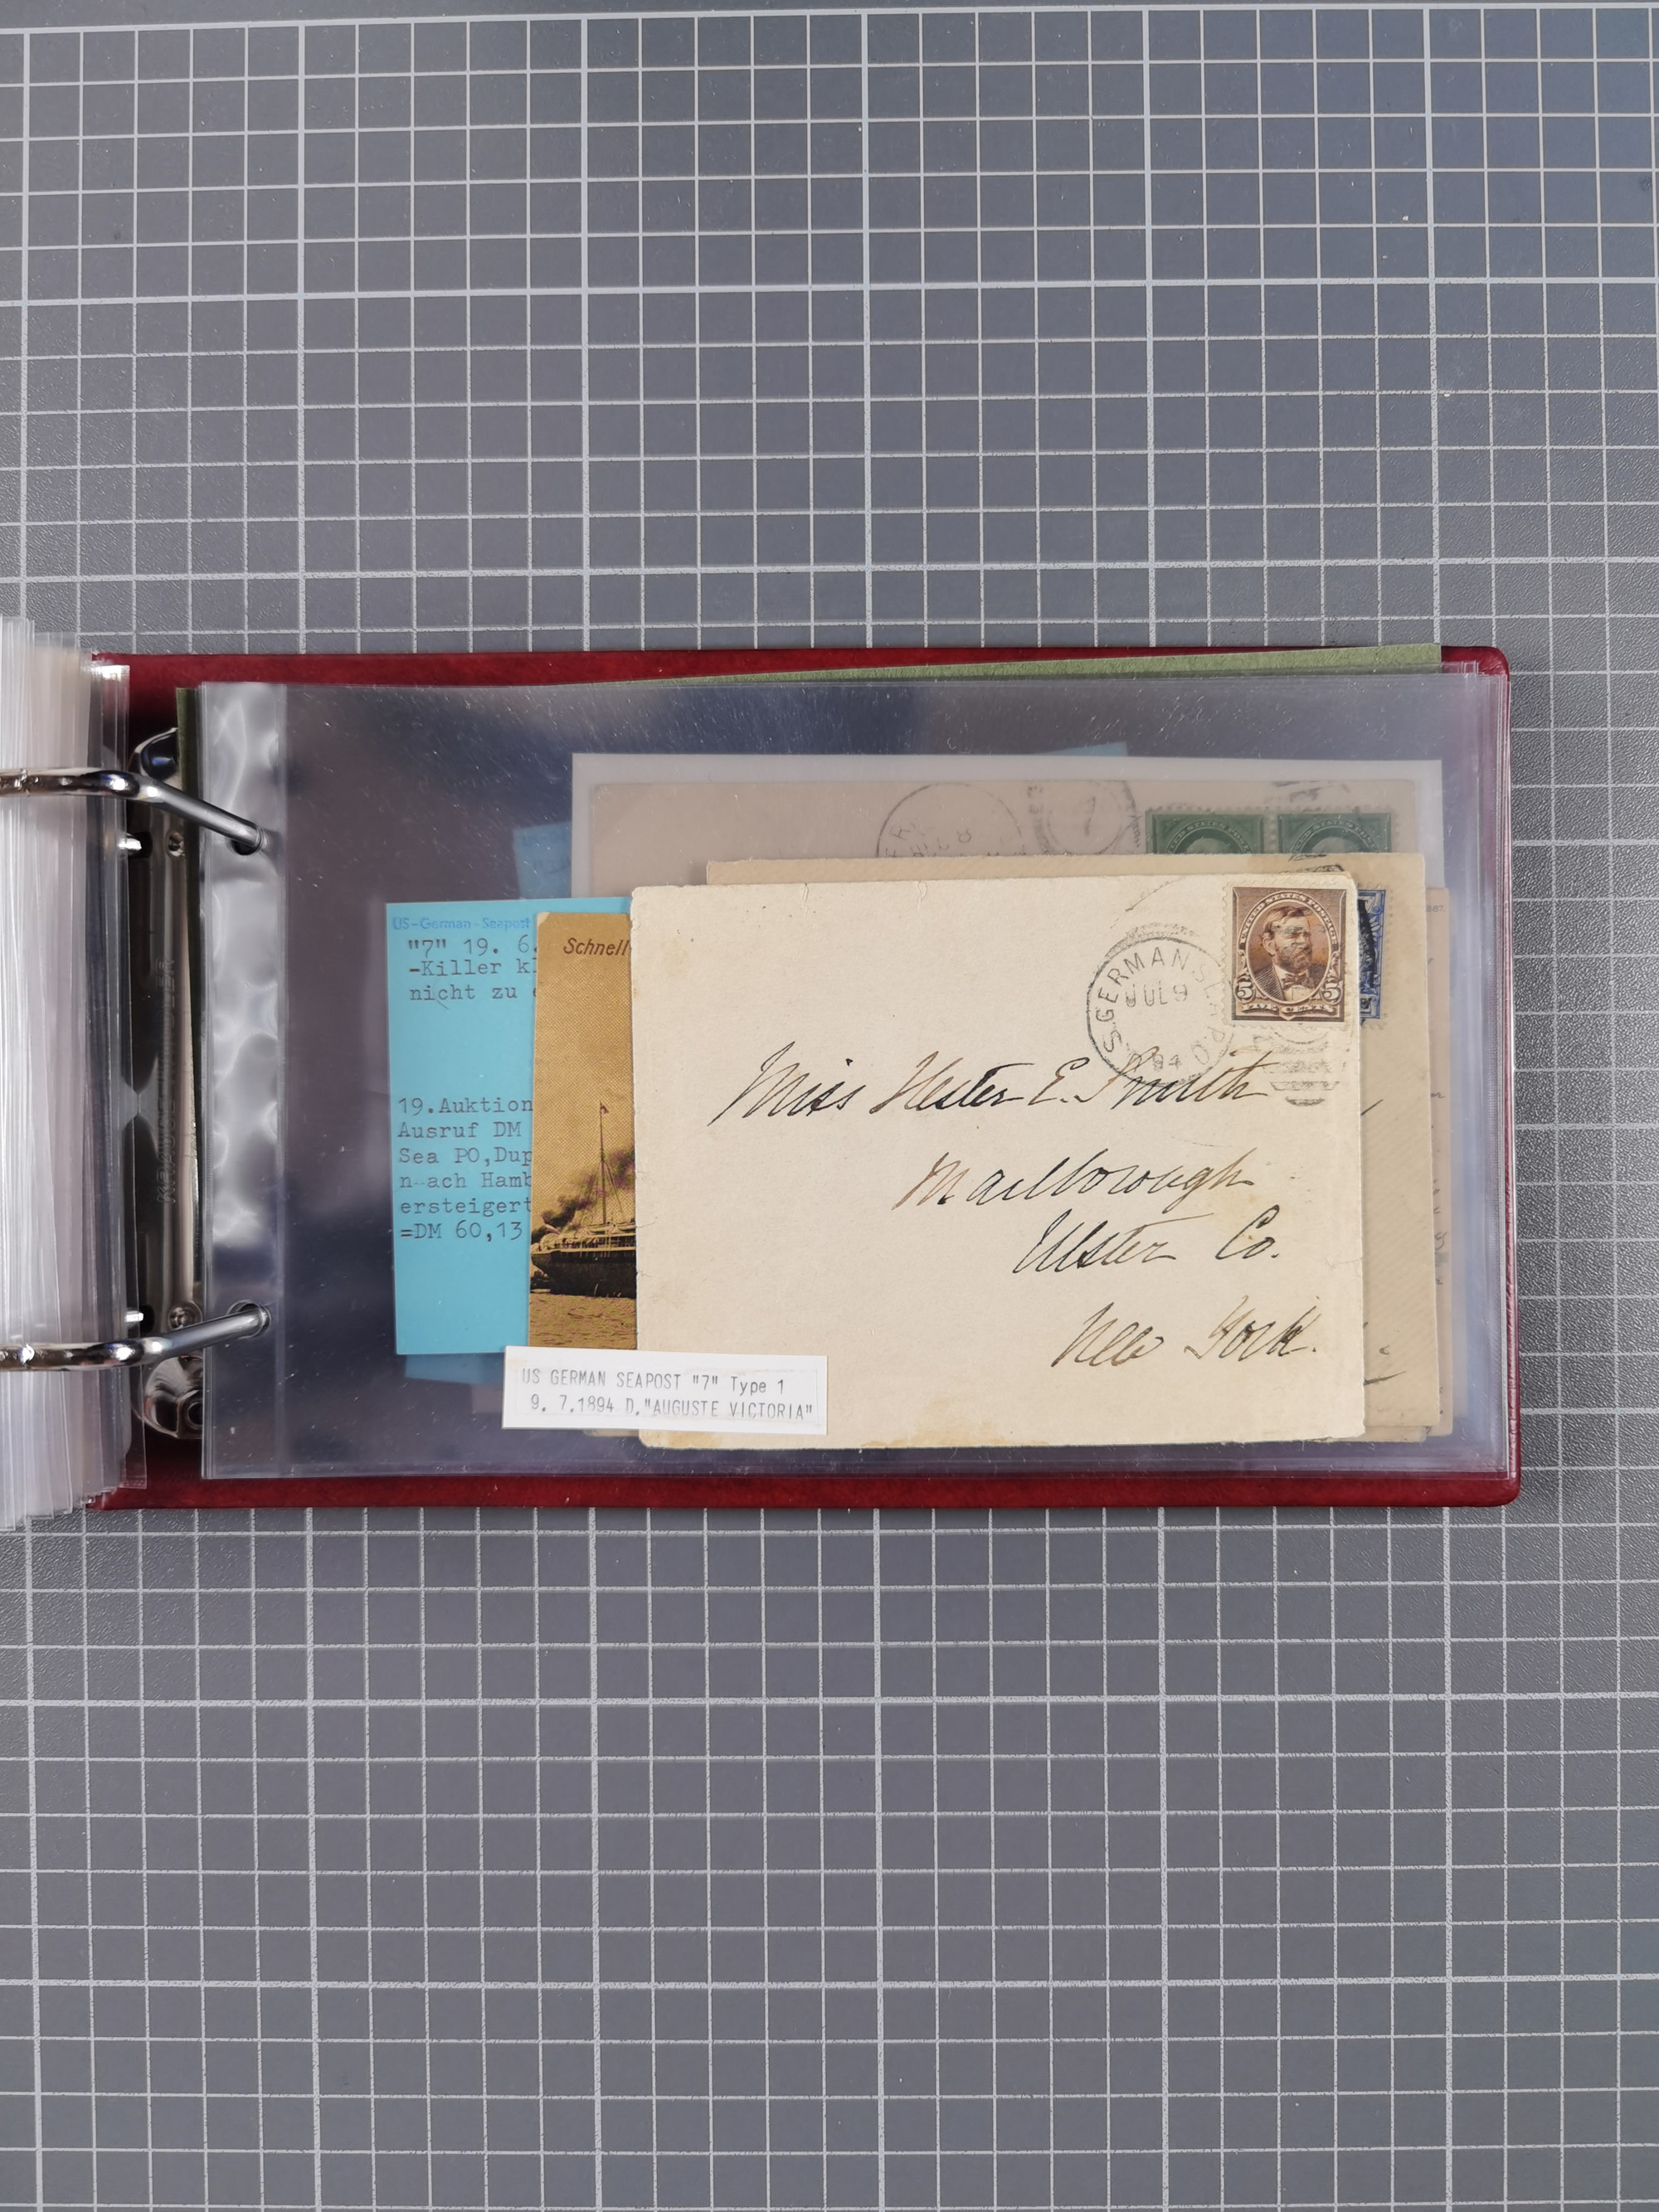 US-German-Seapost
"7" 19. 6.
-Killer
nicht zu
19.Auktion
Ausruf DM
Sea PO,Dup
n-ach Hamb
ersteigert
=DM 60,13
Schnell
S. GERMAN SEA P.O.
JUL 9
94
UNITED STATES POSTAGE
5 5
FIVE CENTS
Miss Hester E. Smith
Marlborough
Ulster Co.
New York.
US GERMAN SEAPOST "7" Type 1
9. 7.1894 D."AUGUSTE VICTORIA"